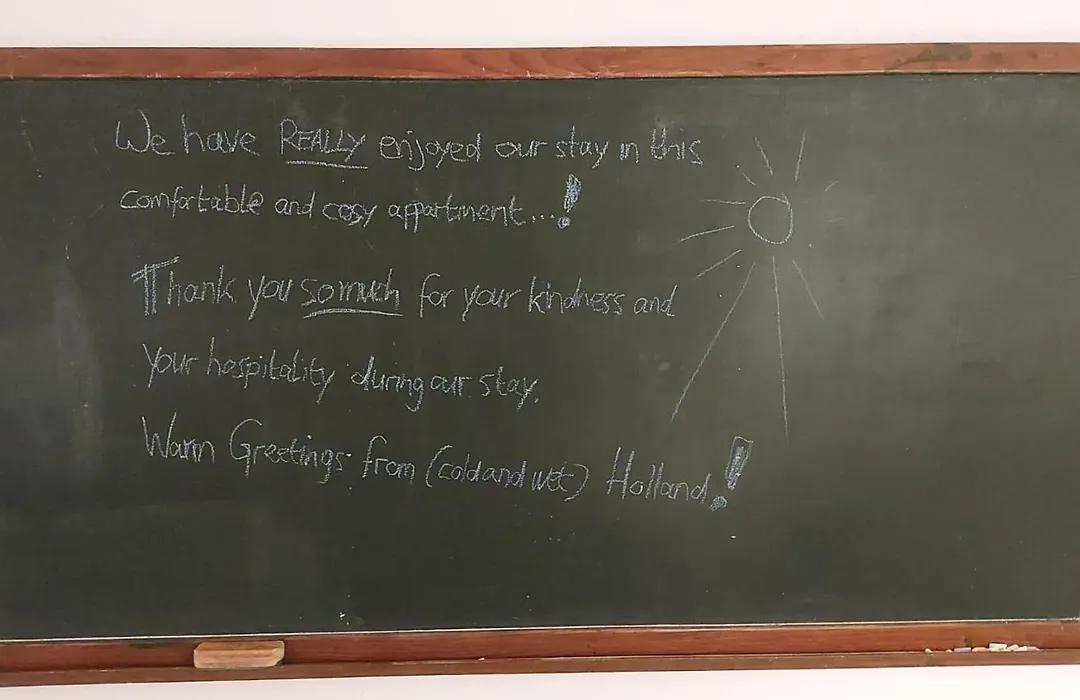 We have REALLY enjoyed our stay in this
comfortable and cosy appartment...!
Thank you so much for your kindness and
your hospitality during our stay.
Warm Greetings from (cold and wet) Holland!